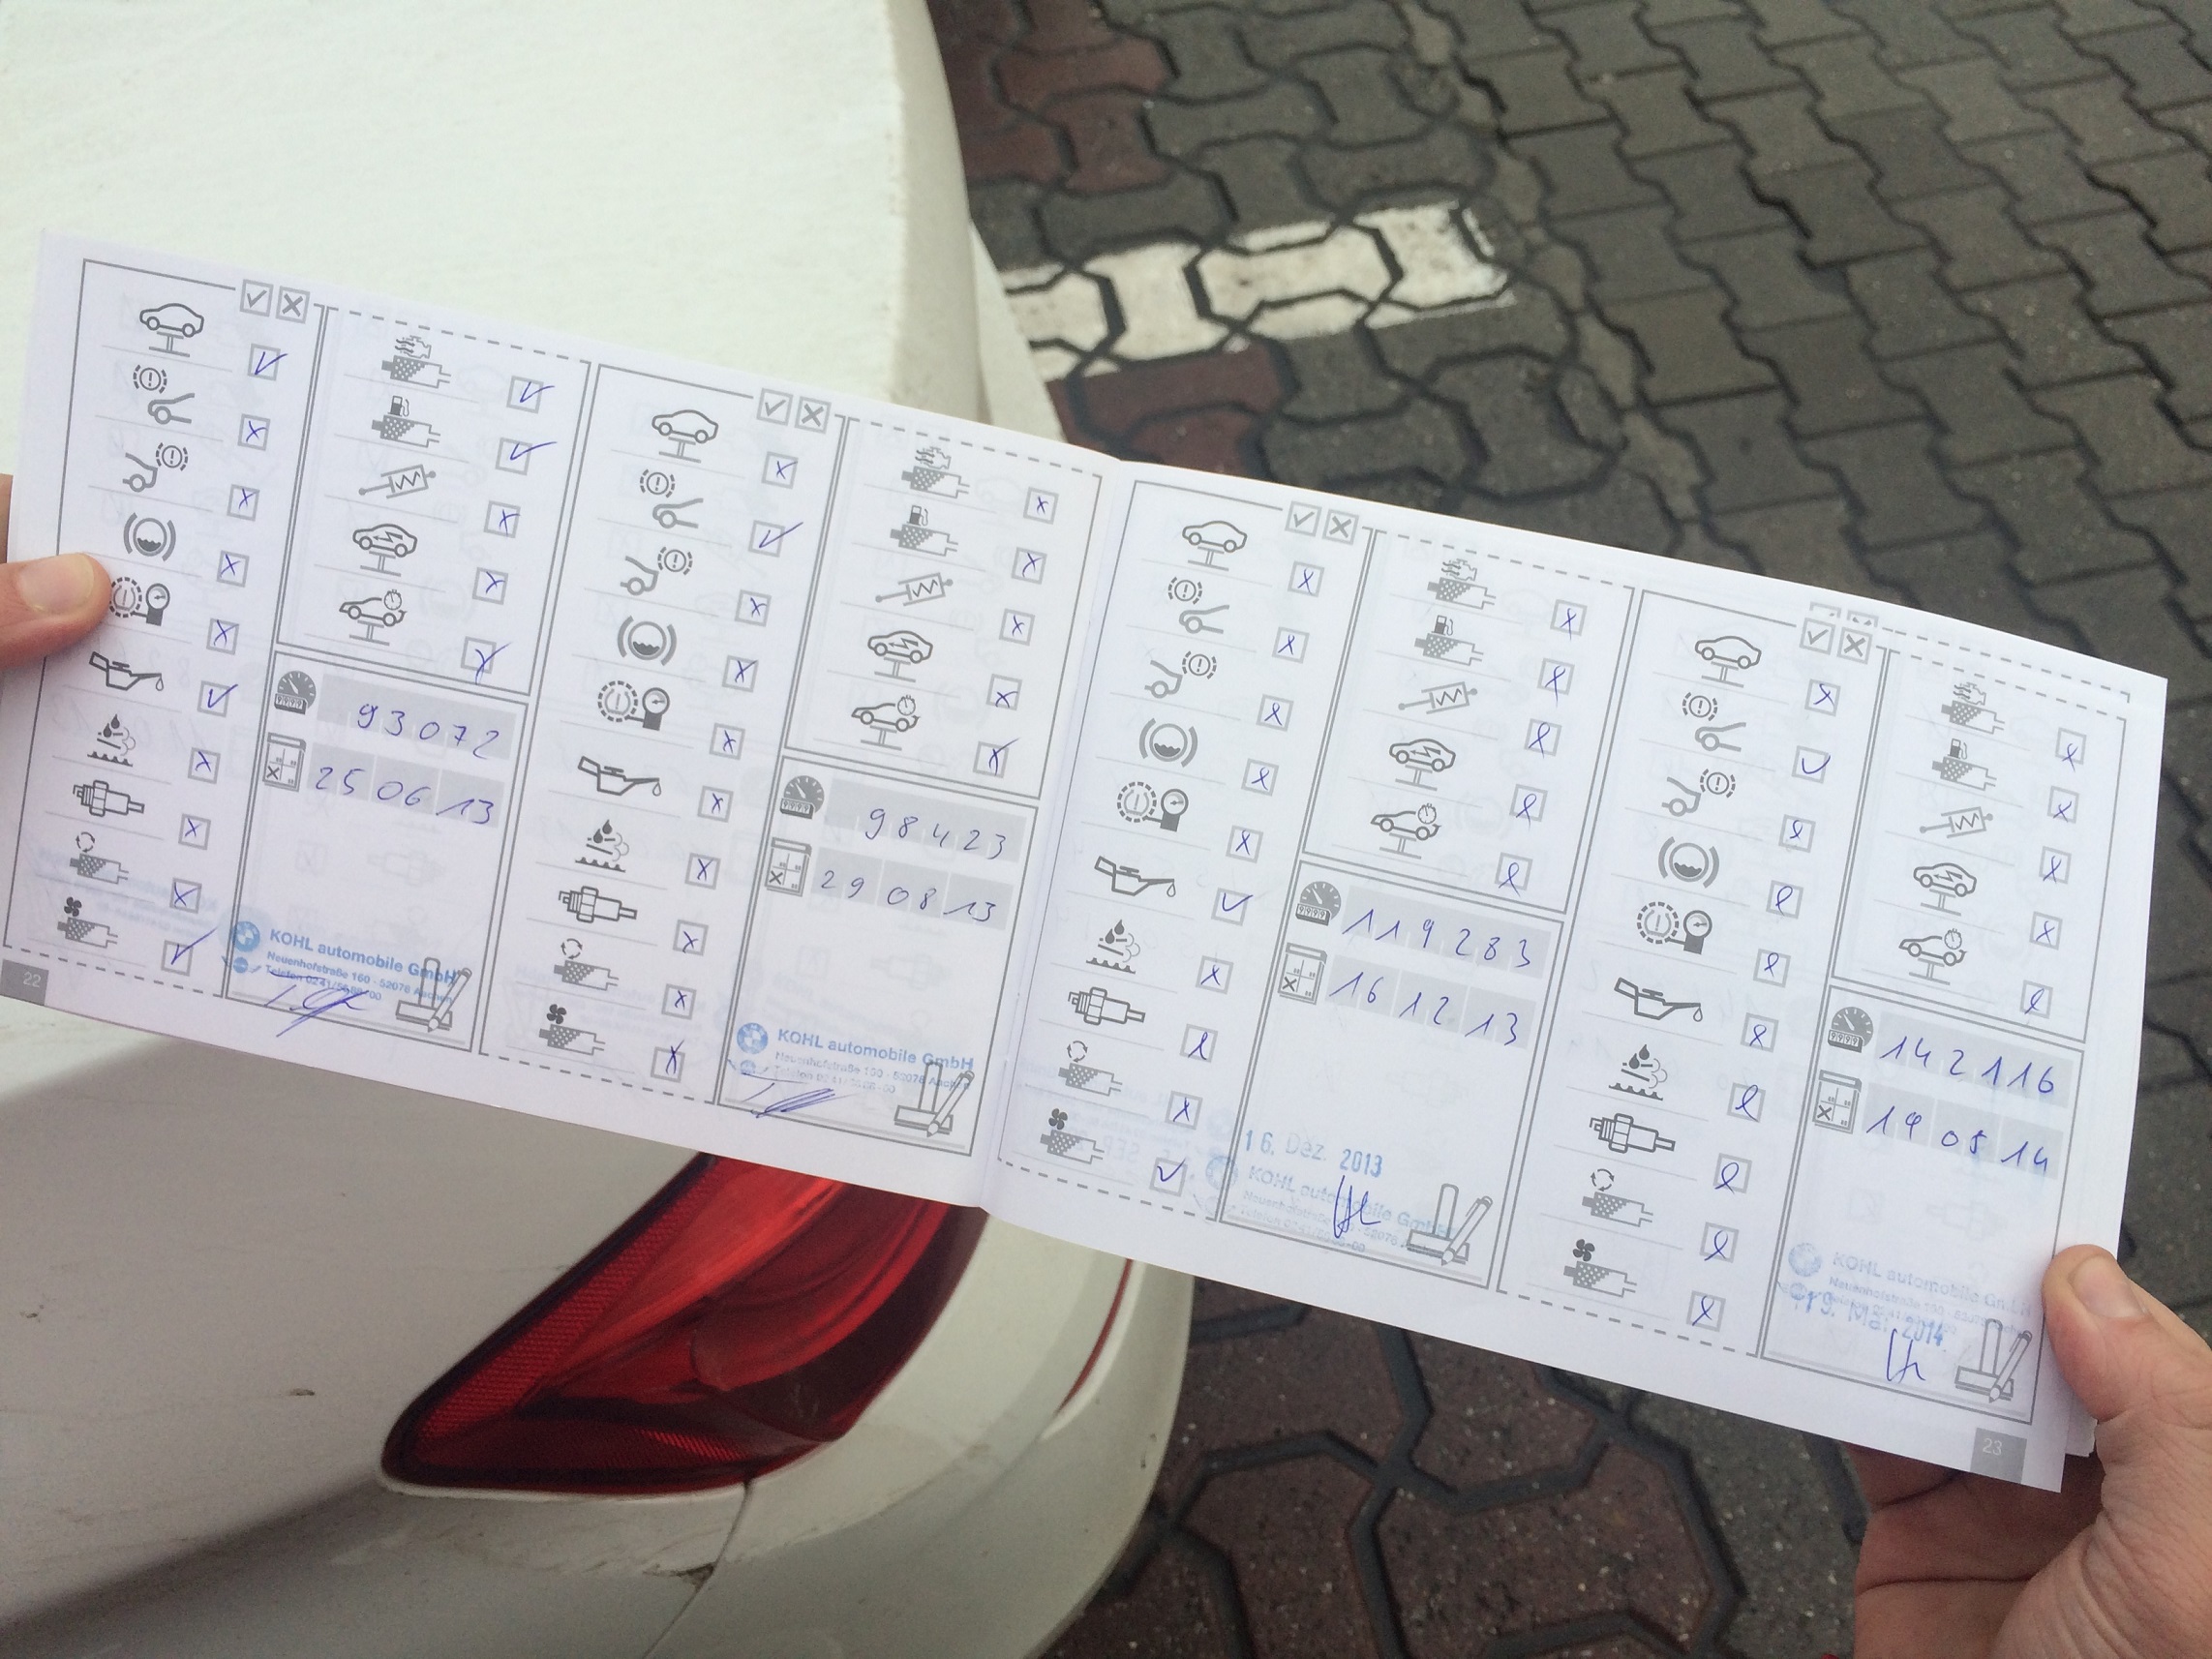 93072
25 06 13
KOHL automobile GmbH
Neuenhofstraße 160 - 52078 Aachen
22
98423
29 08 13
KOHL automobile GmbH
Neuenhofstraße 160 - 52078 Aachen
119283
16 12 13
16. Dez. 2013
KOHL automobile GmbH
Neuenhofstraße 160 - 52078 Aachen
142116
19 05 14
KOHL automobile GmbH
Neuenhofstraße 160
19. Mai 2014
23